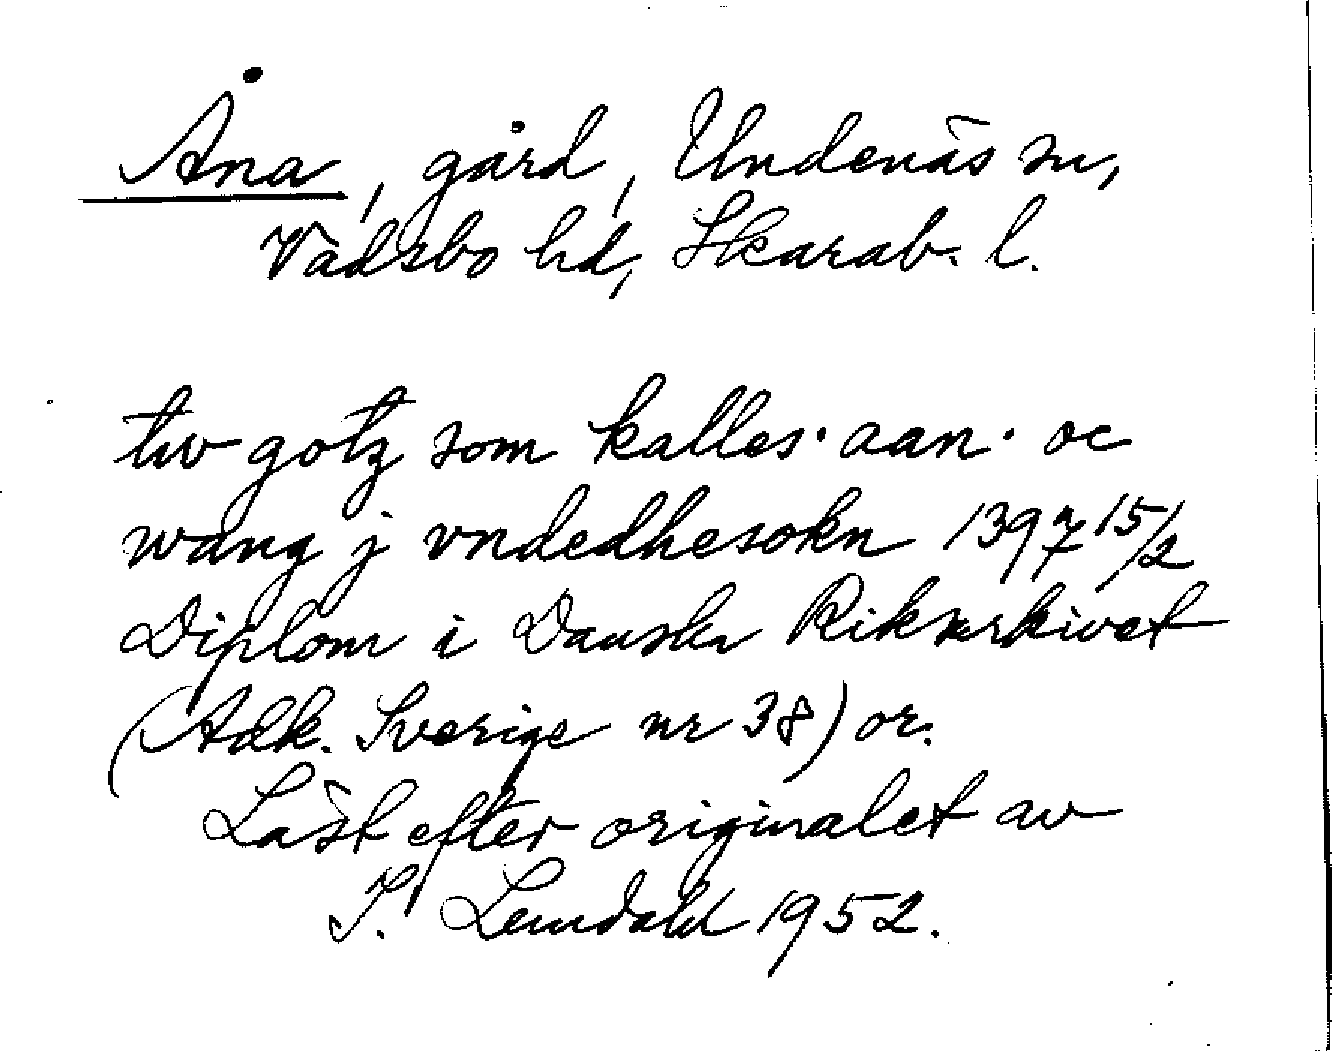 Åna, gård, Undenäs sn,
Vadsbo hd, Skarab. l.
tw gotz som kalles · aan · oc
wang j vndedhesokn 1397 15/2
Diplom i Danska Riksarkivet
(Adk. Sverige nr 38) or.
Läst efter originalet av
I. Lundahl 1952.